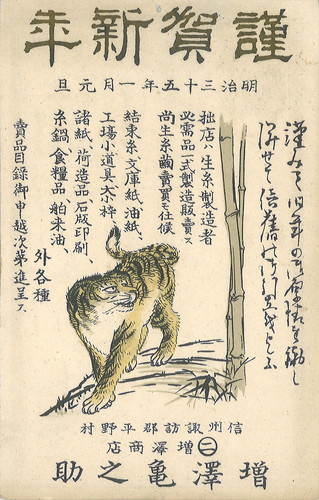 謹賀新年
明治三十五年一月元旦
謹みて旧年の御厚情を謝し
併せて倍舊の御引立を
拙店ハ生糸製造者
必需品一式製造販賣ス
尚生糸繭賣買モ仕候
結束糸文庫紙、油紙、
工場小道具、大小枠、
諸紙、荷造品石版印刷、
糸鍋、食糧品、舶来油、
外各種
賣品目録御申越次第進呈ス
信州諏訪郡平野村
㊁増澤商店
増澤亀之助